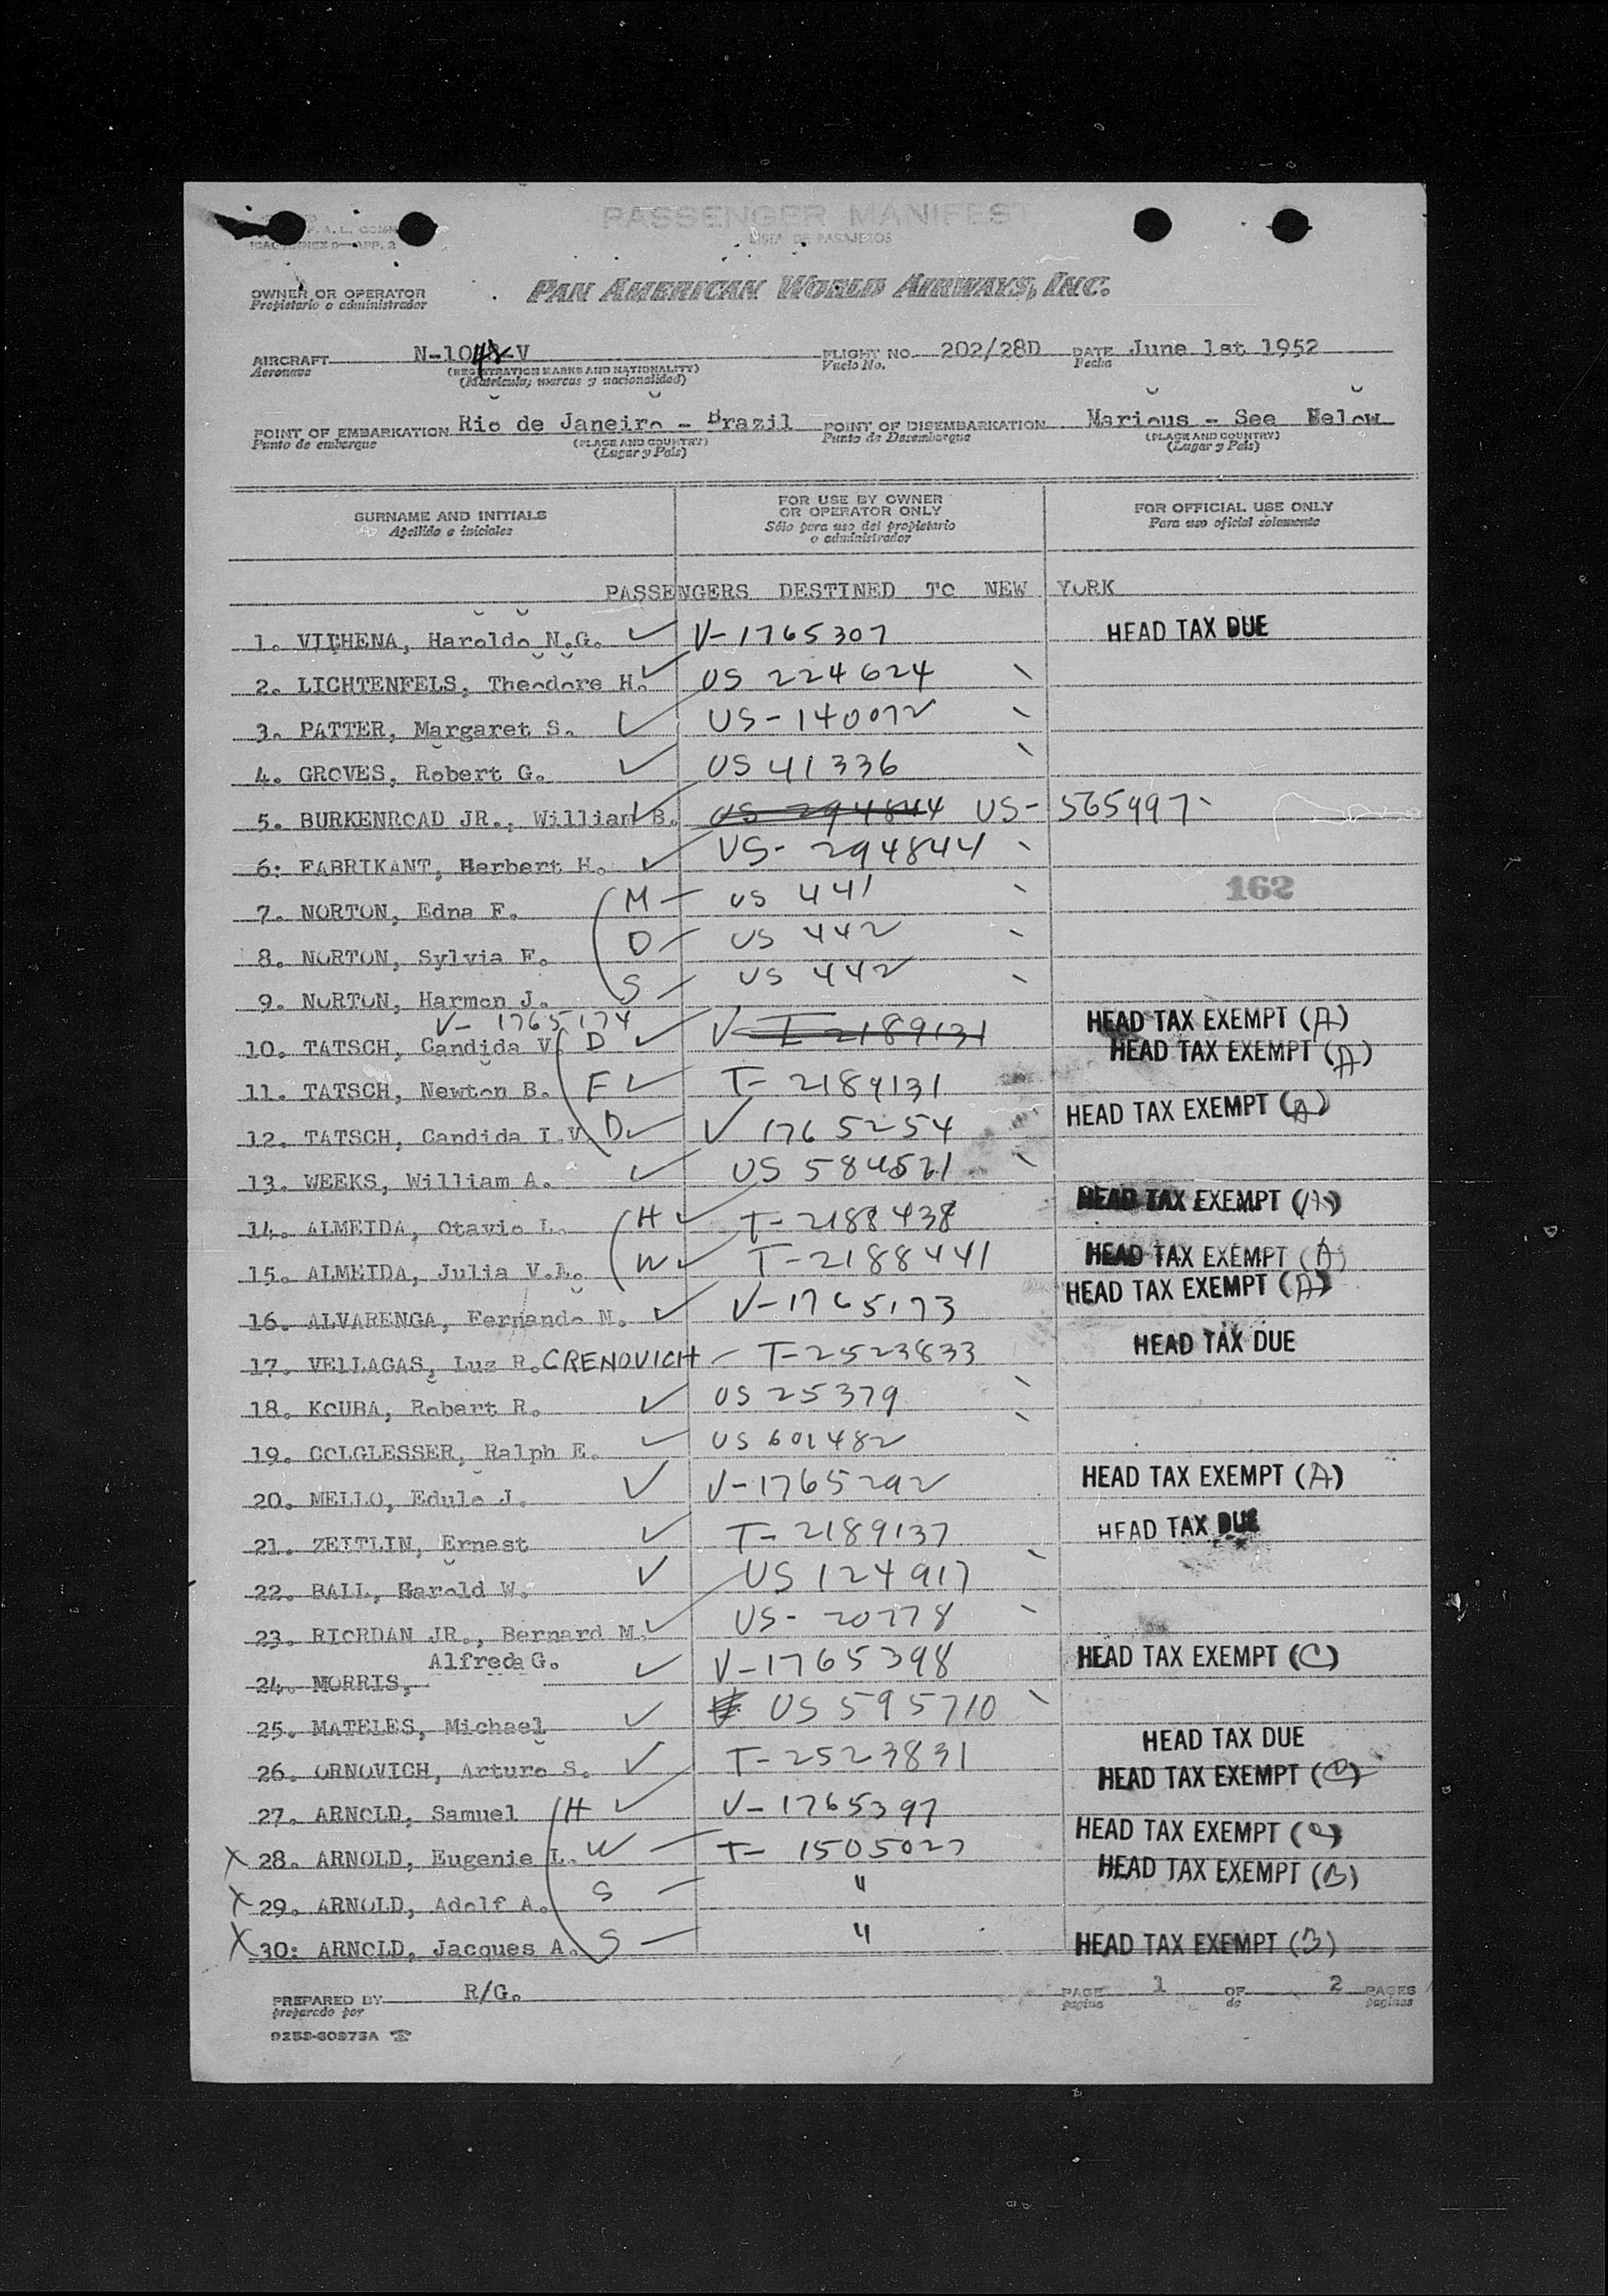 F. A. L. COMM
ICAO ANNEX 9—APP. 2
PASSENGER MANIFEST
LISTA DE PASAJEROS
OWNER OR OPERATOR
Propietario o administrador
PAN AMERICAN WORLD AIRWAYS, INC.
AIRCRAFT N-1048-V FLIGHT NO. 202/28D DATE June 1st 1952
Aeronave (REGISTRATION MARKS AND NATIONALITY) Vuelo No. Fecha
(Matrícula; marcas y nacionalidad)
POINT OF EMBARKATION Rio de Janeiro - Brazil POINT OF DISEMBARKATION Marious - See Below
Punto de embarque (PLACE AND COUNTRY) Punto de Desembarque (PLACE AND COUNTRY)
(Lugar y País) (Lugar y País)
SURNAME AND INITIALS FOR USE BY OWNER OR OPERATOR ONLY FOR OFFICIAL USE ONLY
Apellido e iniciales Sólo para uso del propietario o administrador Para uso oficial solamente
PASSENGERS DESTINED TO NEW YORK
1. VILHENA, Haroldo N.G. V-1765307 HEAD TAX DUE
2. LICHTENFELS, Theodore H. US 224624
3. PATTER, Margaret S. US-140072
4. GROVES, Robert G. US 41336
5. BURKENROAD JR., William B. US 294844 US-565997
6: FABRIKANT, Herbert H. US-294844
162
7. NORTON, Edna F. M US 441
8. NORTON, Sylvia F. D US 442
9. NORTON, Harmon J. S US 442
V-1765174
10. TATSCH, Candida V. D V T-2189131 HEAD TAX EXEMPT (A)
11. TATSCH, Newton B. F T-2189131 HEAD TAX EXEMPT (A)
12. TATSCH, Candida I.V. D V 1765254 HEAD TAX EXEMPT (A)
13. WEEKS, William A. US 584521
14. ALMEIDA, Otavio L. H T-2188438 HEAD TAX EXEMPT (A)
15. ALMEIDA, Julia V.A. W T-2188441 HEAD TAX EXEMPT (A)
16. ALVARENGA, Fernando M. V-1765173 HEAD TAX EXEMPT (A)
17. VELLAGAS, Luz R. CRENOVICH T-2523833 HEAD TAX DUE
18. KOUBA, Robert R. US 25379
19. COLGLESSER, Ralph E. US 601482
20. MELLO, Edulo J. V-1765292 HEAD TAX EXEMPT (A)
21. ZEITLIN, Ernest T-2189137 HEAD TAX DUE
22. BALL, Harold W. US 124917
23. RIORDAN JR., Bernard M. US-20778
Alfreda G.
24. MORRIS, V-1765398 HEAD TAX EXEMPT (C)
25. MATELES, Michael US 595710
26. ORNOVICH, Arturo S. T-2523831 HEAD TAX DUE
27. ARNOLD, Samuel H V-1765397 HEAD TAX EXEMPT (C)
X 28. ARNOLD, Eugenie L. W T-1505027 HEAD TAX EXEMPT (C)
X 29. ARNOLD, Adolf A. S " HEAD TAX EXEMPT (B)
X 30: ARNOLD, Jacques A. S " HEAD TAX EXEMPT (B)
PREPARED BY R/G. PAGE 1 OF 2 PAGES
preparado por página de páginas
9253-60373A